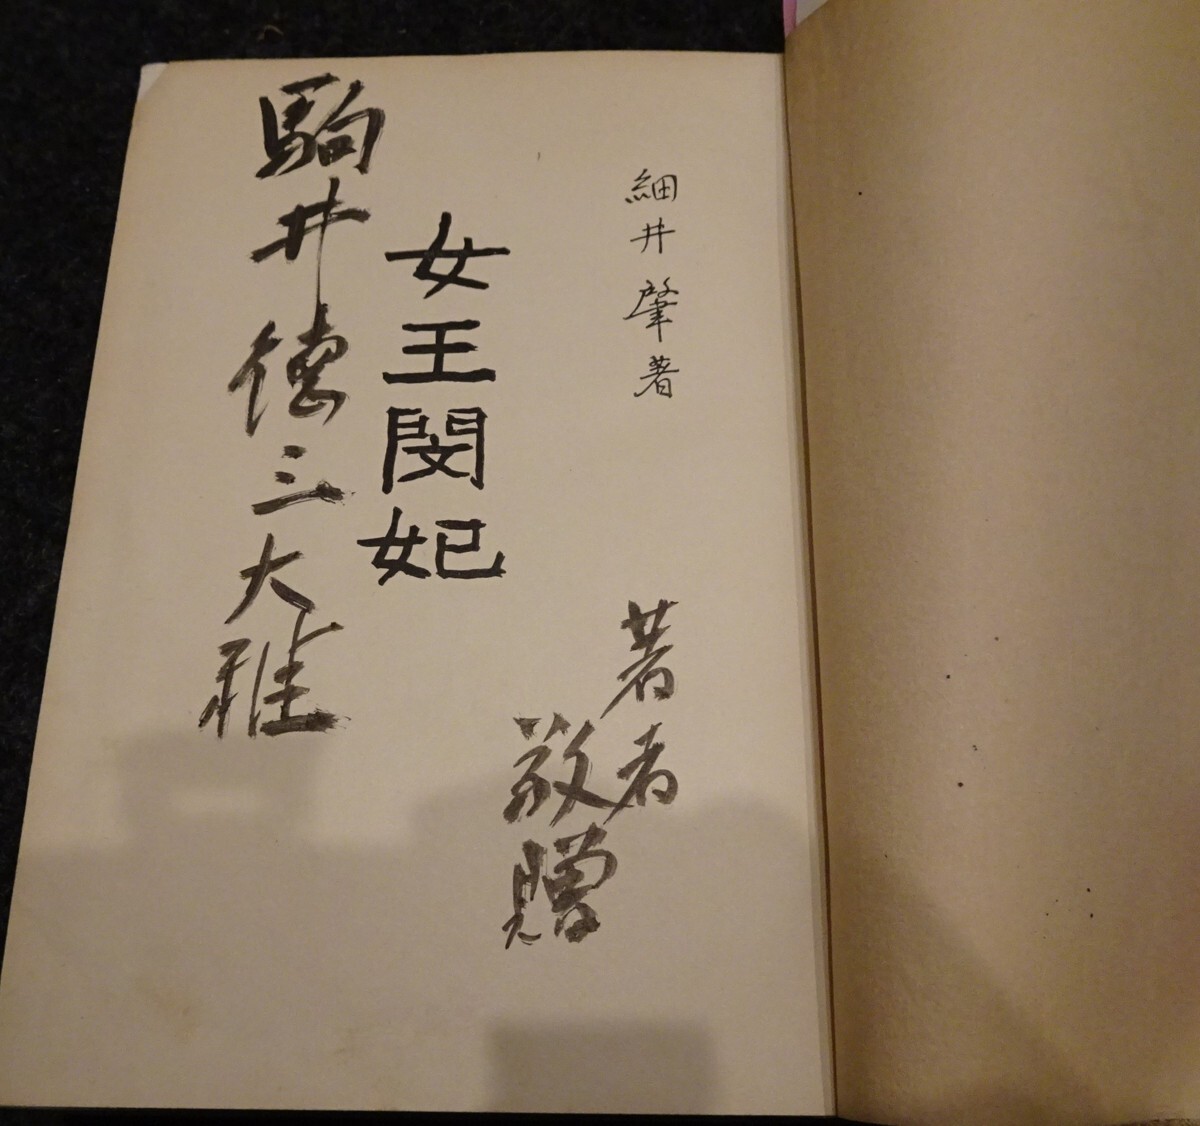 細井肇著
女王閔妃
駒井徳三大雅
著者
敬贈